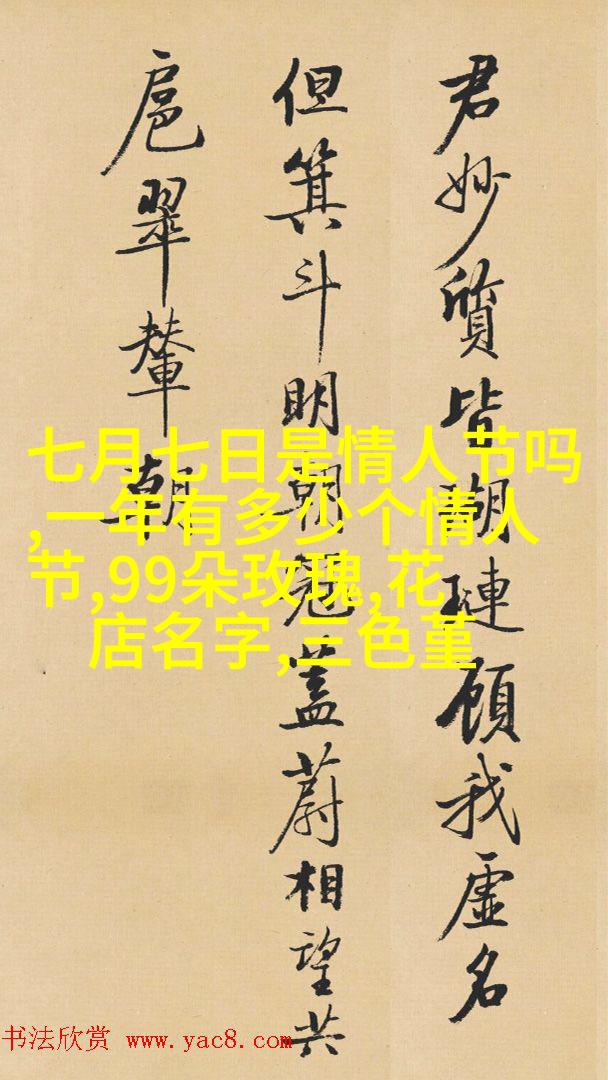 君妙質皆瑚璉顧我虛名
但箕斗明朝冠蓋蔚相望共
扈翠輦朝
七月七日是情人节吗
,一年有多少个情人
节,99朵玫瑰,花
店名字,三色堇
书法欣赏 www.yac8.com